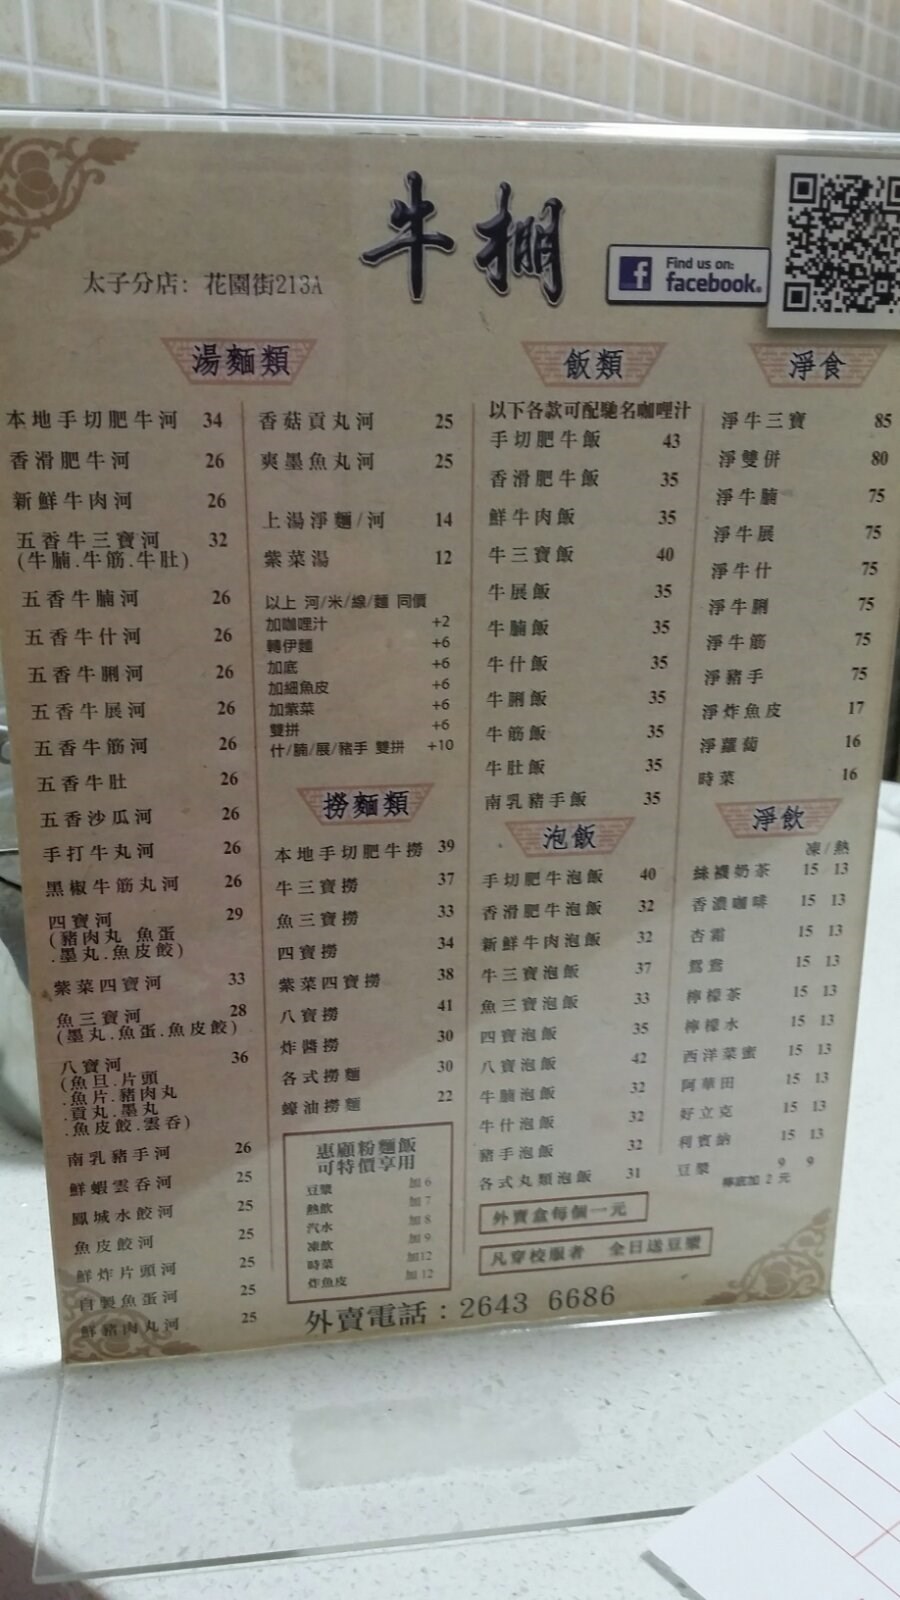 牛棚
太子分店: 花園街213A
Find us on:
facebook.
湯麵類
本地手切肥牛河 34
香滑肥牛河 26
新鮮牛肉河 26
五香牛三寶河 32
(牛腩.牛筋.牛肚)
五香牛腩河 26
五香牛什河 26
五香牛脷河 26
五香牛展河 26
五香牛筋河 26
五香牛肚 26
五香沙瓜河 26
手打牛丸河 26
黑椒牛筋丸河 26
四寶河 29
(豬肉丸 魚蛋
.墨丸.魚皮餃)
紫菜四寶河 33
魚三寶河 28
(墨丸.魚蛋.魚皮餃)
八寶河 36
(魚旦.片頭
.魚片.豬肉丸
.貢丸.墨丸
.魚皮餃.雲吞)
南乳豬手河 26
鮮蝦雲吞河 25
鳳城水餃河 25
魚皮餃河 25
鮮炸片頭河 25
自製魚蛋河 25
鮮豬肉丸河 25
香菇貢丸河 25
爽墨魚丸河 25
上湯淨麵/河 14
紫菜湯 12
以上 河/米/線/麵 同價
加咖哩汁 +2
轉伊麵 +6
加底 +6
加細魚皮 +6
加紫菜 +6
雙拼 +6
什/腩/展/豬手 雙拼 +10
撈麵類
本地手切肥牛撈 39
牛三寶撈 37
魚三寶撈 33
四寶撈 34
紫菜四寶撈 38
八寶撈 41
炸醬撈 30
各式撈麵 30
蠔油撈麵 22
惠顧粉麵飯
可特價享用
豆漿 加 6
熱飲 加 7
汽水 加 8
凍飲 加 9
時菜 加12
炸魚皮 加 12
飯類
以下各款可配馳名咖哩汁
手切肥牛飯 43
香滑肥牛飯 35
鮮牛肉飯 35
牛三寶飯 40
牛展飯 35
牛腩飯 35
牛什飯 35
牛脷飯 35
牛筋飯 35
牛肚飯 35
南乳豬手飯 35
泡飯
手切肥牛泡飯 40
香滑肥牛泡飯 32
新鮮牛肉泡飯 32
牛三寶泡飯 37
魚三寶泡飯 33
四寶泡飯 35
八寶泡飯 42
牛腩泡飯 32
牛什泡飯 32
豬手泡飯 32
各式丸類泡飯 31
外賣盒每個一元
凡穿校服者 全日送豆漿
淨食
淨牛三寶 85
淨雙併 80
淨牛腩 75
淨牛展 75
淨牛什 75
淨牛脷 75
淨牛筋 75
淨豬手 75
淨炸魚皮 17
淨蘿蔔 16
時菜 16
淨飲
凍/熱
絲襪奶茶 15 13
香濃咖啡 15 13
杏霜 15 13
鴛鴦 15 13
檸檬茶 15 13
檸檬水 15 13
西洋菜蜜 15 13
阿華田 15 13
好立克 15 13
利賓納 15 13
豆漿 9 9
加 2 元
外賣電話:2643 6686